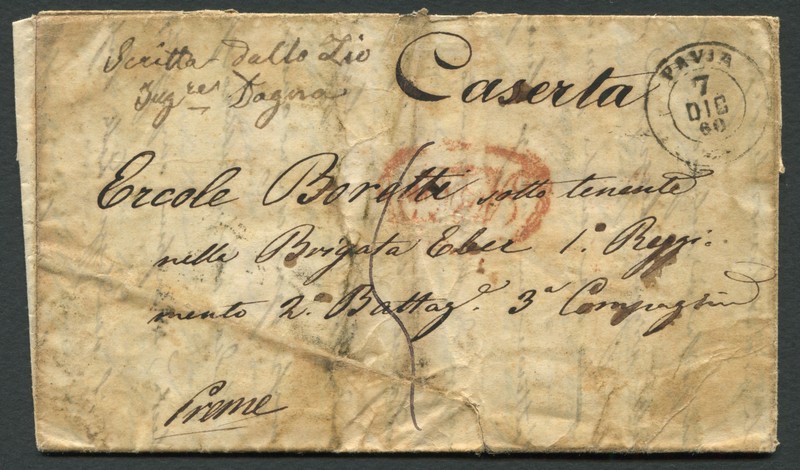 Scritta dallo Zio
Ing.re Dagna
Caserta
PAVIA
7
DIC
60
Ercole Boretti sotto tenente
nella Brigata Eber 1.o Reggi-
mento 2.o Battag.e 3.a Compagnia
Preme